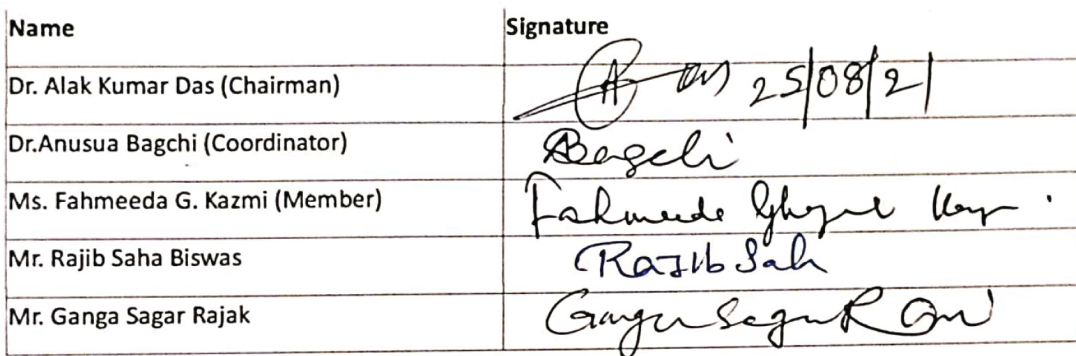 Name Signature
Dr. Alak Kumar Das (Chairman) 25/08/21
Dr.Anusua Bagchi (Coordinator) ABagchi
Ms. Fahmeeda G. Kazmi (Member) Fahmeeda
Mr. Rajib Saha Biswas Rajib Sah
Mr. Ganga Sagar Rajak Ganga Sagar